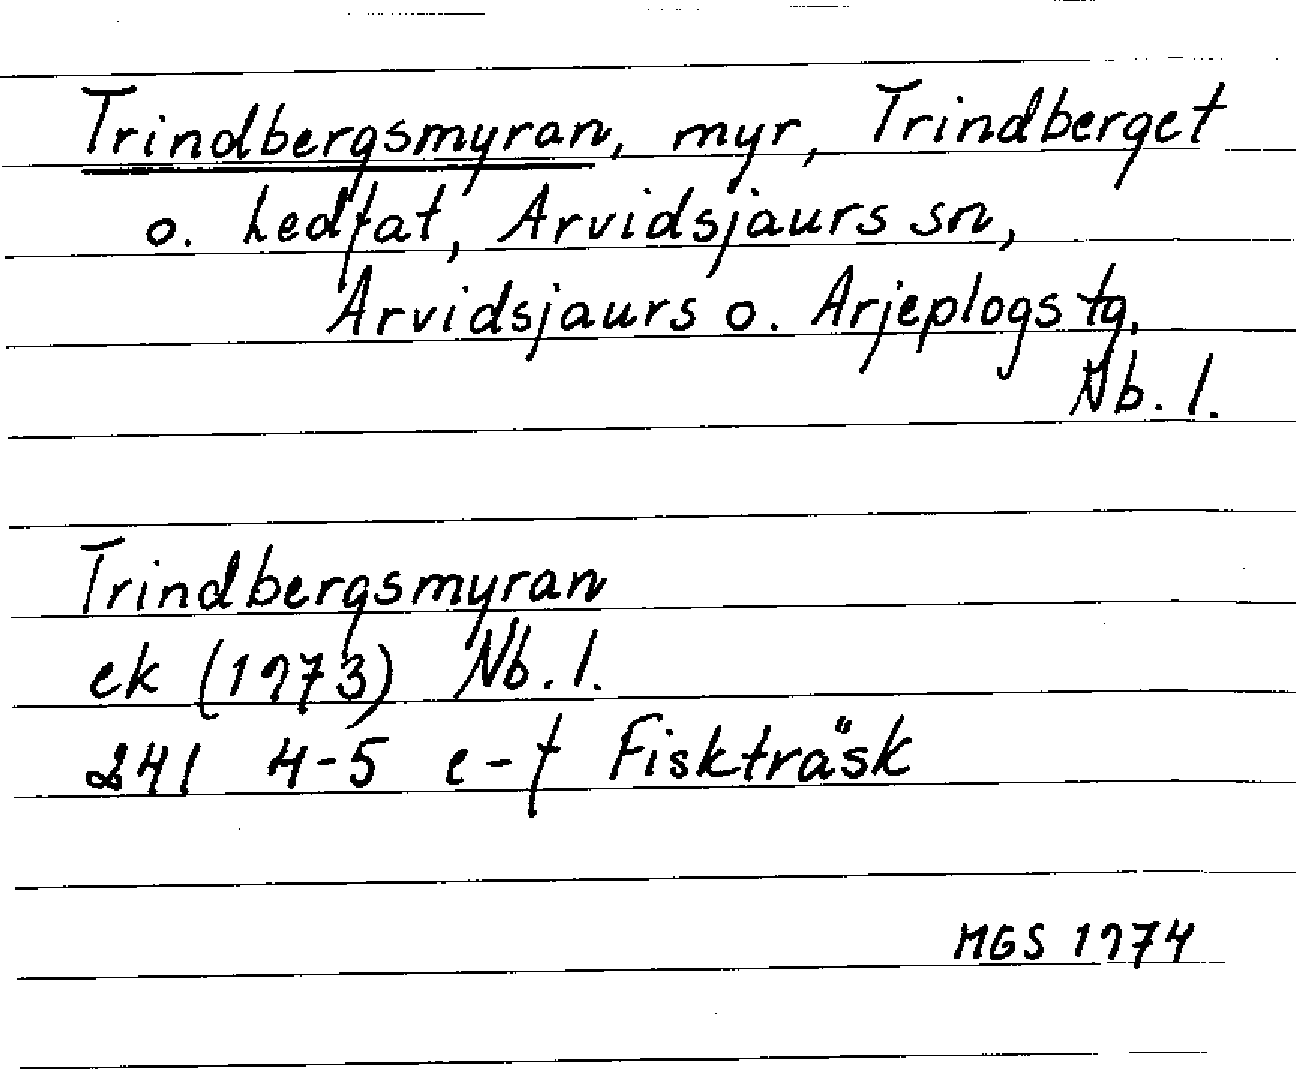 Trindbergsmyran, myr, Trindberget
o. Ledfat, Arvidsjaurs sn,
Arvidsjaurs o. Arjeplogs tg,
Nb. l.
Trindbergsmyran
ek (1973) Nb. l.
241 4-5 e-f Fiskträsk
MGS 1974